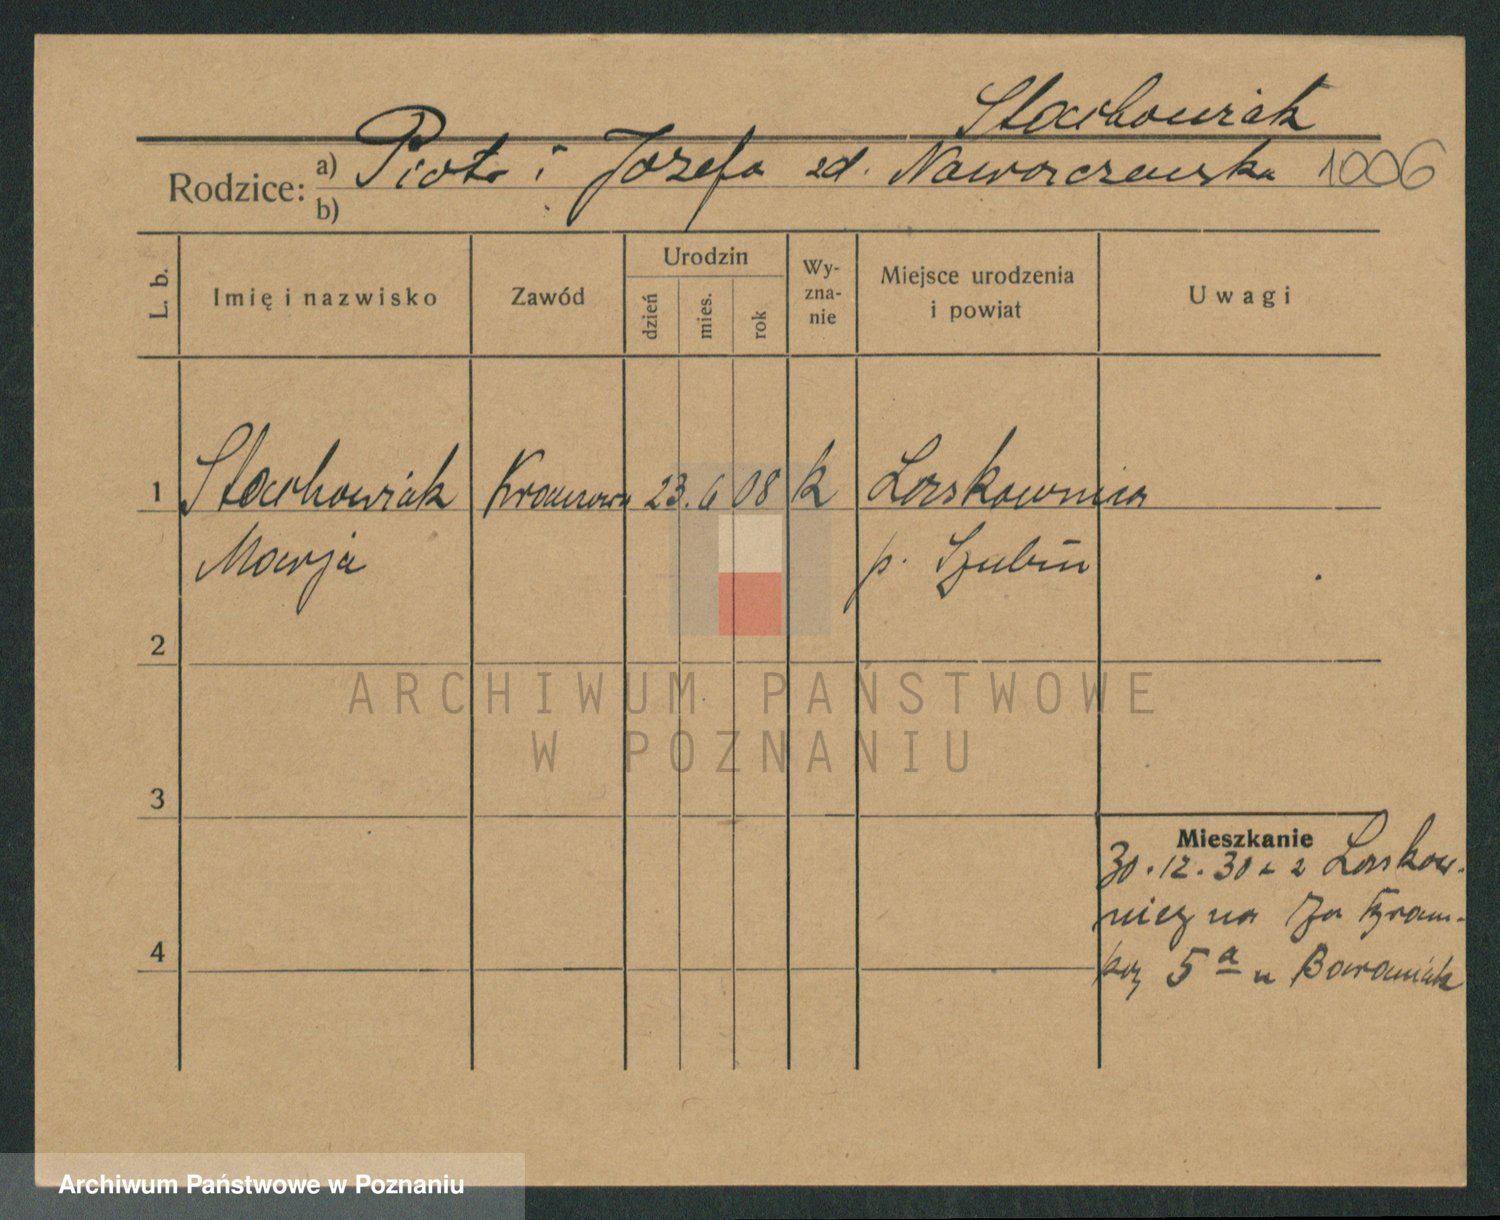 Stachowiak
Rodzice: a) Piotr i Józefa zd. Nawrczewska 1006
b)
L. b. Imię i nazwisko Zawód Urodzin dzień mies. rok Wy-zna-nie Miejsce urodzenia i powiat Uwagi
1 Stachowiak Krawcowa 23. 6 08 k Laskownica
Marja p. Szubin
2
ARCHIWUM PAŃSTWOWE
W POZNANIU
3
Mieszkanie
30.12.30 z Laskow-
nicy na Za
4
5 a u Baraniak
Archiwum Państwowe w Poznaniu